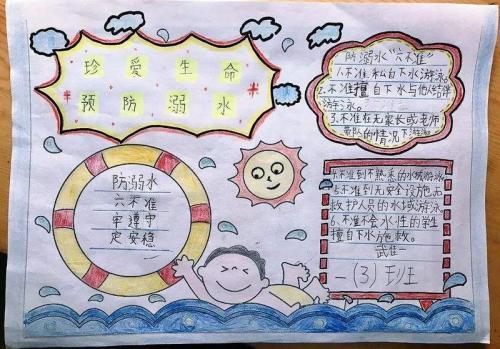 珍爱生命
预防溺水
防溺水“六不准”
1.不准私自下水游泳。
2.不准擅自下水与他人结伴
游泳。
3.不准在无家长或老师
带队的情况下游泳
防溺水
六不准
牢遵守
定安稳
4.不准到不熟悉的水域游泳
5.不准到无安全设施,无
救护人员的水域游泳
6.不准不会水性的学生
擅自下水施救。
一(3)班